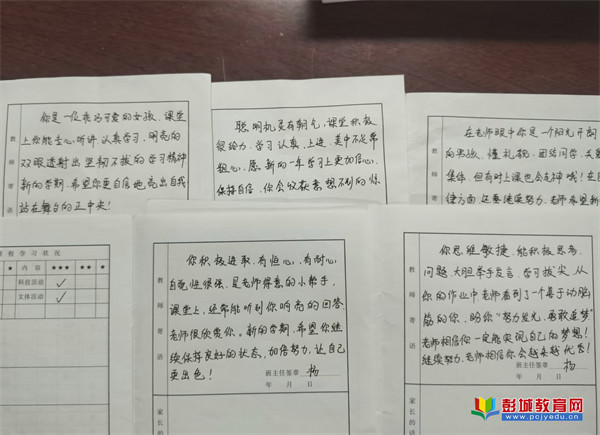 你是一位乖巧可爱的女孩,课堂
上你能专心听讲,认真学习,明亮的
双眼透射出坚韧不拔的学习精神
新的学期,希望你更自信地亮出自我
站在舞台的正中央!
教师寄语
聪明机灵有朝气,课堂积极
很给力,学习认真、上进,美中不足常
粗心,愿新的一年学习上更加信心,
保持自信,你会收获意想不到的惊
在老师眼中你是一个阳光开朗
的男孩,懂礼貌,团结同学,关
集体,但有时上课也会走神哦!在
律方面还要继续努力,老师希望新
教师寄语
程学习状况
★ 内容 ★★★ ★★ ★
科技活动 ✓
文体活动 ✓
你积极进取,有恒心,有耐心,
自觉性很强,是老师得意的小帮手,
课堂上,还都能听到你响亮的回答
老师很欣赏你。新的学期,希望你继
续保持良好的状态,加倍努力,让自己
更出色!
教师寄语
班主任签章 杨
年 月 日
家长的
你思维敏捷,能积极思考
问题,大胆举手发言,学习拔尖,从
你的作业中老师看到了一个善于动脑
筋的你,盼你“努力发光,勇敢追梦”
老师相信你一定能实现自己的梦想!
继续努力,老师相信你会越来越优秀!
教师寄语
班主任签章 杨
年 月 日
家长的话
彭城教育网
www.pcjyedu.cn